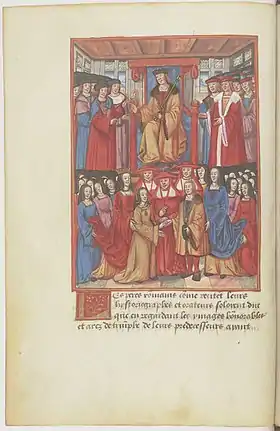 Les peres romains côme recitêt leurs
hystoriographes et orateurs soloient dire
que en regardant les ymages hônorables
et arcz de triûphe de leurs predecesseurs ayant